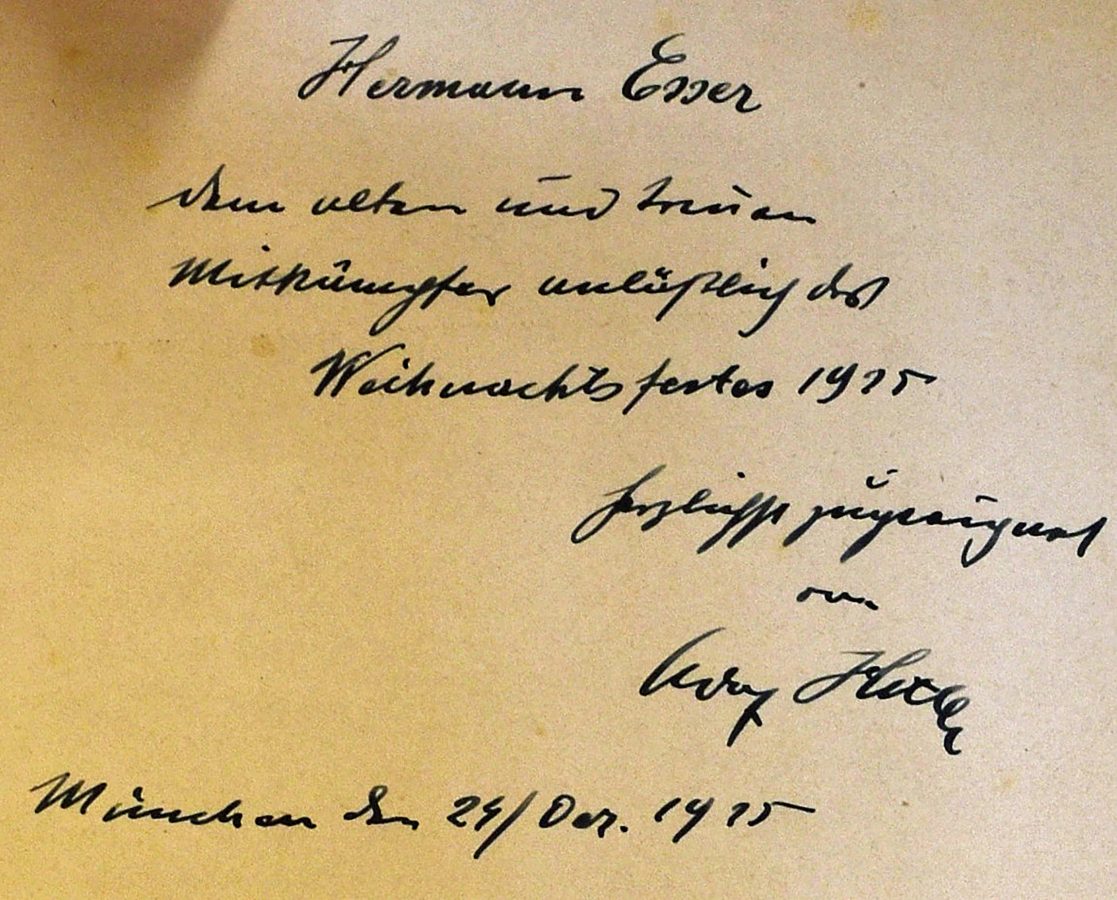 Hermann Esser
dem alten und treuen
Mitkämpfer anläßlich des
Weihnachtsfestes 1925
herzlichst zugeeignet
von
Adolf Hitler
München den 24/Dez. 1925